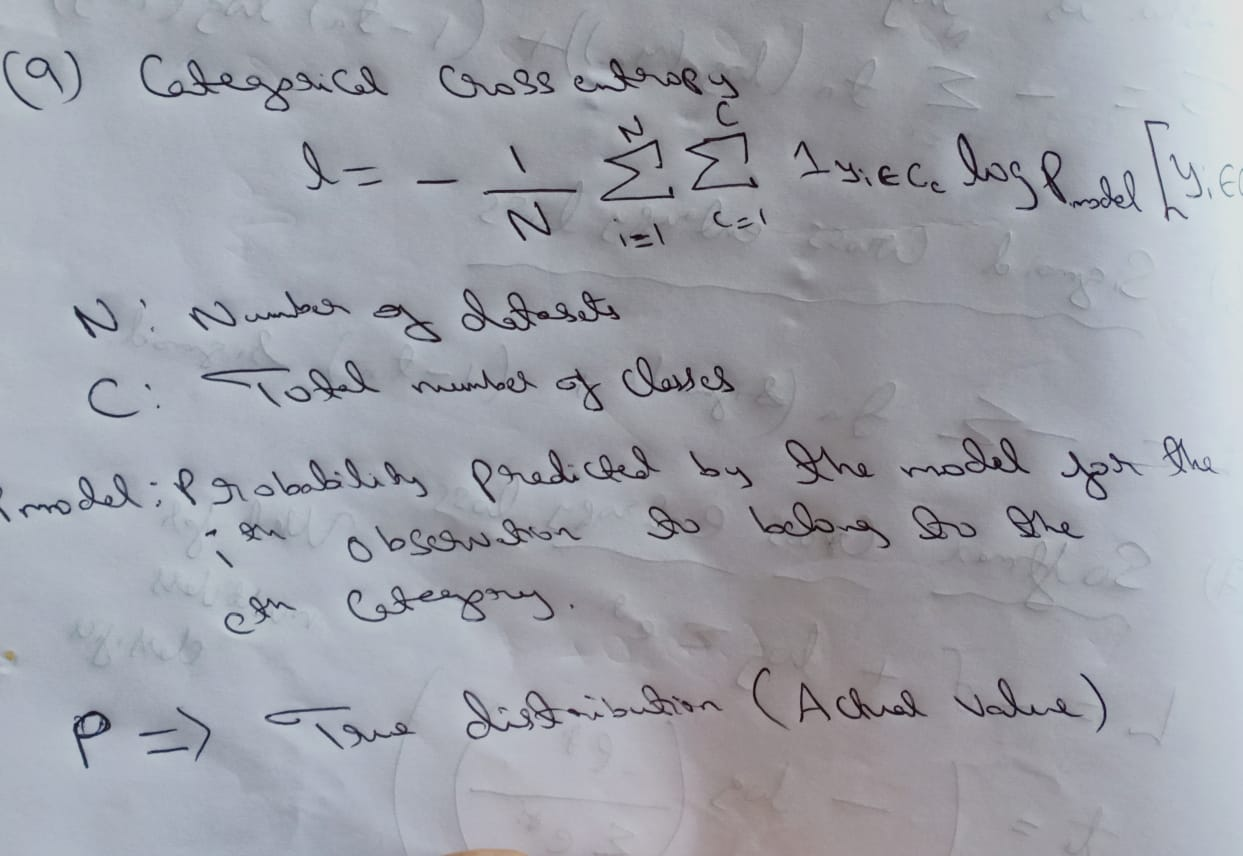 (9) Categorical Cross entropy
l = - 1/N N∑i=1 C∑c=1 1 yi∈Cc log Pmodel [yi ∈
N: Number of datasets
C: Total number of classes
Pmodel: Probability predicted by the model for the
ith observation to belong to the
cth Category.
P => True distribution (Actual value)